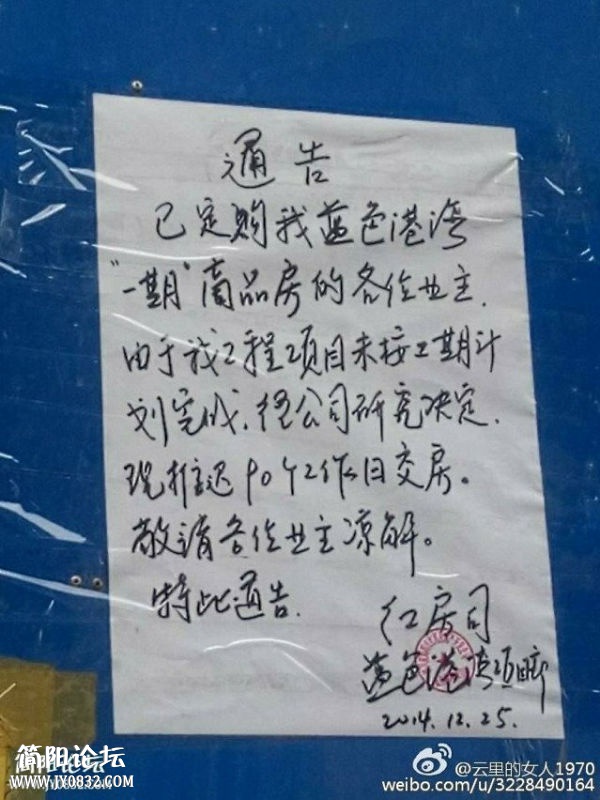 通告
已定购我蓝色港湾
"一期"商品房的各位业主，
由于我工程项目未按工期计
划完成，经公司研究决定，
现推迟90个工作日交房。
敬请各位业主凉解。
特此通告
红房司
蓝色港湾项目部
2014.12.25.
简阳论坛
www.JY0832.com
@云里的女人1970
weibo.com/u/3228490164